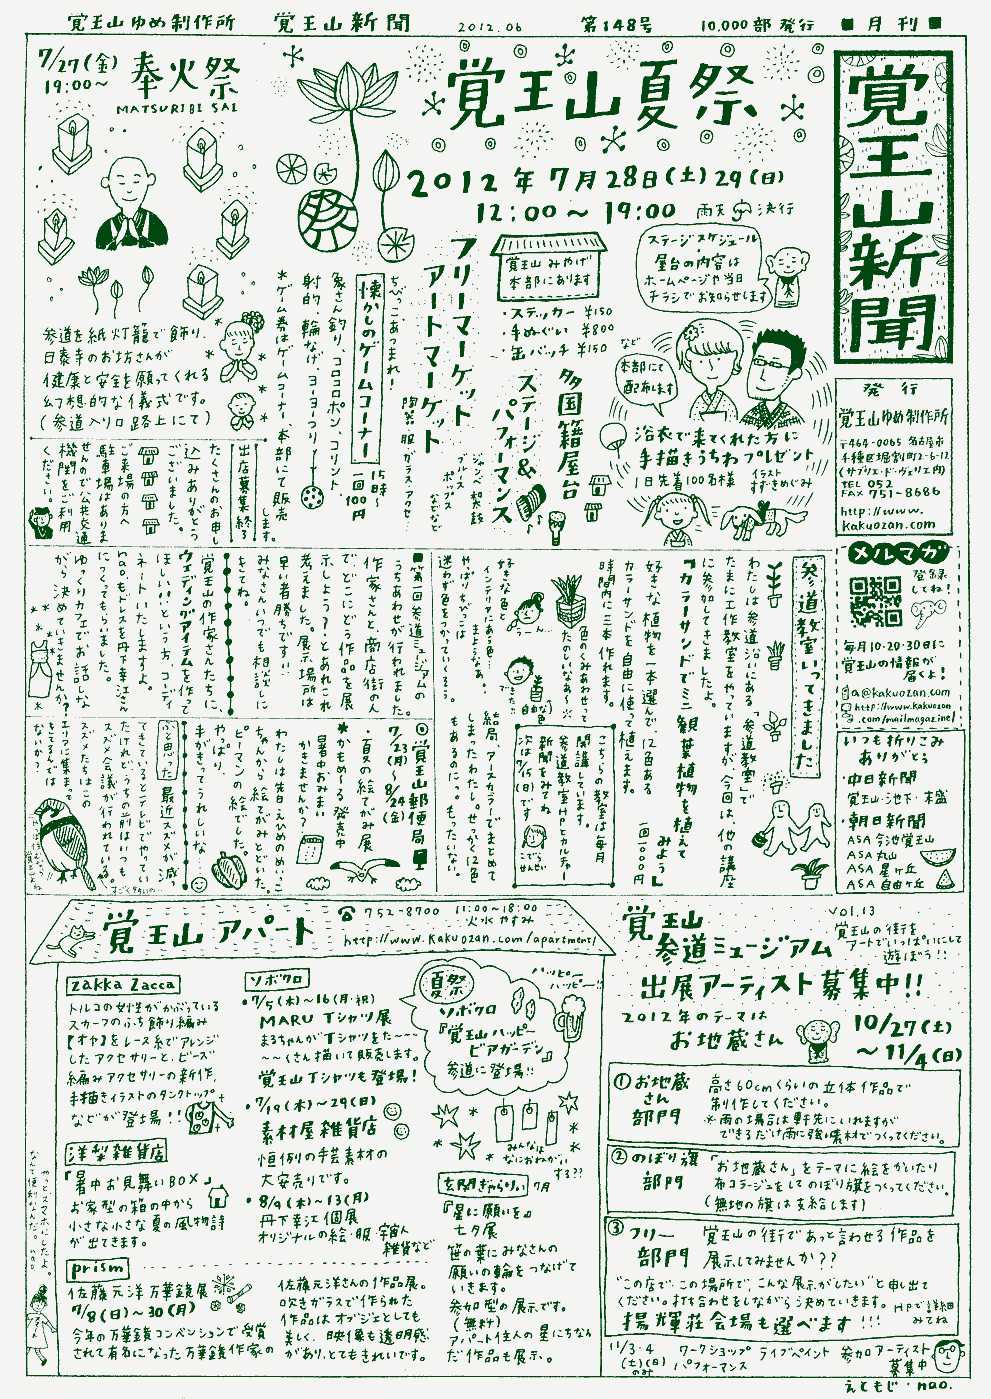 覚王山ゆめ制作所 覚王山新聞 2012.06 第148号 10,000部発行 ■月刊■
覚王山新聞
発行
覚王山ゆめ制作所
〒464-0065 名古屋市
千種区堀割町2-6-12
(サブリエ・ド・ヴェリエ内)
TEL 052
FAX 751-8686
http://www.
kakuozan.com
メルマガ
登録
してね!
毎月10・20・30日に
覚王山の情報が
届くよ!
a@kakuozan.com
http://www.kakuozan
.com/mailmagazine/
いつも折りこみ
ありがとう
・中日新聞
覚王山・池下・末盛
・朝日新聞
ASA 今池覚王山
ASA 丸山
ASA 星ヶ丘
ASA 自由ヶ丘
覚王山夏祭
2012年7月28日(土)29(日)
12:00〜19:00 雨天決行
ステージスケジュール
・
屋台の内容は
ホームページや当日
チラシでお知らせします
覚王山みやげ
本部にあります
・ステッカー ¥150
・手ぬぐい ¥800
・缶バッチ ¥150
など
本部にて
配布します
浴衣で来てくれた方に
手描きうちわプレゼント
1日先着100名様
イラスト
すずきめぐみ
多国籍屋台
ステージ&
パフォーマンス
ジャンベ 和太鼓
ブルース
ポップス
などなど
フリーマーケット
アートマーケット
陶器 服 ガラス・アクセ
ちびっこあつまれ!
懐かしのゲームコーナー
15時〜
一回100円
象さん釣り、コロコロポン、コリント
射的、輪なげ、ヨーヨーつり
*ゲーム券はゲームコーナー本部にて販売
します。
7/27(金)
19:00〜
奉火祭
MATSURIBI SAI
参道を紙灯籠で飾り、
日泰寺のお坊さんが
健康と安全を願ってくれる
幻想的な儀式です。
(参道入り口路上にて)
出店募集終了
たくさんのお申し
込みありがとう
ございました。
ご来場の方へ
駐車場はありま
せんので公共交通
機関をご利用
ください。
参道教室いってきました
わたしは普段覚王山にある「参道教室」で
たまに工作教室をやっていますが、今回は、他の講座
に参加してきましたよ。
『カラーサンドでミニ観葉植物を植えて
みよう』
一回1000円
好きな植物を一本選んで、12色ある
カラーサンドを自由に使って植えます。
時間内に三本作れます。
色のくみあわせって
たのしいなあ〜
好きな色と
インテリアにあう色…
まようなぁ。
やっぱりちびっこは
迷わず色をつかっていくう。
うーん…
できた!
自由な色
結局、アースカラーでまとめて
しまったわたし。せっかく12色
もあるのにっ。もったいない。
こちらの教室は毎月
開講しています。
参道教室HPとカルチャー
新聞をみてね。
次は7/15(日)です
こでら
せんせい
■第一回参道ミュージアムの
うちあわせが行われました。
作家さんと、商店街の人
で、どこにどう作品を展
示しよう?とあれこれ
考えました。展示場所は
早い者勝ちです!!
みなさんいつでも相談に
きてね。
覚王山の作家さんたちに、
ウェディングアイテムを作って
ほしい!という方、コーディ
ネートいたしますよ。
naoもドレスを丹下幸江さん
につくってもらいました。
ゆっくりカフェでお話しな
がら決めていきませんか?
◎覚王山郵便局
7/23(月)〜8/24(金)
・夏の絵てがみ展
*かもめ〜る 発売中
暑中お見まい
かきませんか?
わたしは先日えひめのめいっこ
ちゃんから絵てがみとどいた。
ピーマンの絵でした。
やっぱり、
手がきってうれしいな。
ふと思った
最近スズメが減っ
てきているとテレビでやってい
たけれど、うちの前はいつも
スズメ会議が行われている。
スズメたちはこの
エリアに集まって
きてるんでは
ないか?
すごく多いの…
覚王山アパート
☎752-8700 11:00〜18:00
火水やすみ
http://www.kakuozan.com/apartment/
zakka Zacca
トルコの女性がかぶっている
スカーフのふち飾り編み
【オヤ】をレース糸でアレンジ
したアクセサリーと、ビーズ
編みアクセサリーの新作、
手描きイラストのタンクトップ
などが登場!!
洋梨雑貨店
『暑中お見舞いBOX』
お家型の箱の中から
小さな小さな夏の風物詩
が出てきます。
prism
佐藤元洋 万華鏡展
7/8(日)〜30(月)
今年の万華鏡コンベンションで受賞
されて有名になった万華鏡作家の
佐藤元洋さんの作品展。
吹きガラスで作られた
作品はオブジェとしても
美しく、映像も透明感
があり、とてもきれいです。
ソボクロ
・7/5(木)〜16(月・祝)
MARU Tシャツ展
まるちゃんがTシャツをた〜〜〜
〜〜くさん描いて販売します。
覚王山Tシャツも登場!
・7/19(木)〜29(日)
素材屋雑貨店
恒例の手芸素材の
大安売りです。
・8/9(木)〜13(月)
丹下幸江個展
オリジナルの絵・服・宇宙人
雑貨など
夏祭
ソボクロ
『覚王山ハッピー
ビアガーデン』
参道に登場!!
ハッピー
ハッピー!!
みんなは
なにおねがい
する??
玄関ぎゃらりぃ 7月
『星に願いを』
七夕展
笹の葉にみなさんの
願いの輪をつなげて
いきます。
参加型の展示です。
(無料)
アパート住人の星にちなん
だ作品も展示。
やっとスマホにしたよ。
なんて便利なんだ。nao
覚王山
参道ミュージアム
vol.13
覚王山の街を
アートでいっぱいにして
遊ぼう!!
出展アーティスト募集中!!
2012年のテーマは
お地蔵さん
10/27(土)
〜11/4(日)
①お地蔵
さん
部門
高さ60cmくらいの立体作品で
制作してください。
※雨の場合は軒先にいれますが
できるだけ雨に強い素材でつくってください。
②のぼり旗
部門
「お地蔵さん」をテーマに絵をかいたり
布コラージュをしてのぼり旗をつくってください。
(無地の旗は支給します)
③フリー
部門
覚王山の街であっと言わせる作品を
展示してみませんか??
"この店で、この場所で、こんな展示がしたい"と申し出て
ください。打ち合わせをしながら決めていきます。
HPで詳細
みてね
揚輝荘会場も選べます!!!
11/3・4
(土)(日)
のみ
ワークショップ ライブペイント
パフォーマンス
参加アーティスト
募集中
えともじ・nao.